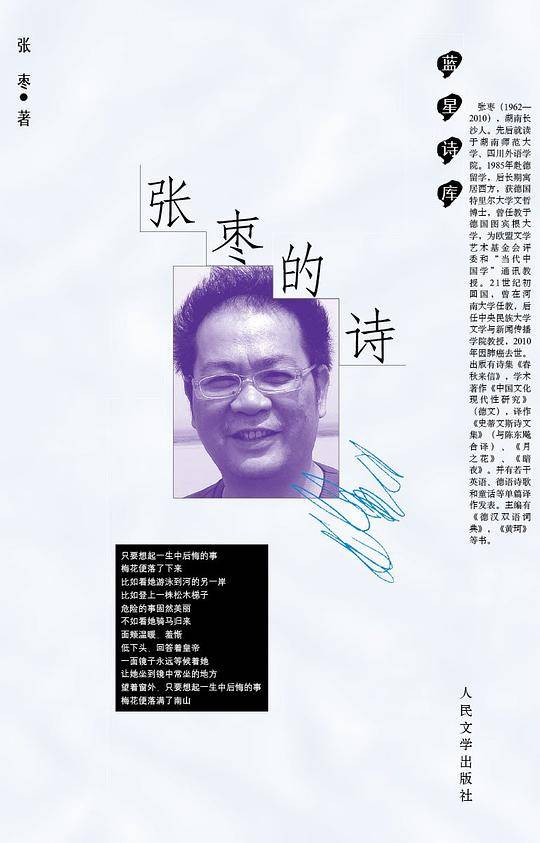 张枣●著
蓝星诗库
张枣的诗
张枣（1962—
2010），湖南长
沙人。先后就读
于湖南师范大
学、四川外语学
院。1985年赴德
留学，后长期寓
居西方，获德国
特里尔大学文哲
博士，曾任教于
德国图宾根大
学，为欧盟文学
艺术基金会评
委和“当代中
国学”通讯教
授。21世纪初
回国，曾在河
南大学任教，后
任中央民族大学
文学与新闻传播
学院教授，2010
年因肺癌去世。
出版有诗集《春
秋来信》，学术
著作《中国文化
现代性研究》
（德文），译作
《史蒂文斯诗文
集》（与陈东飚
合译）、《月
之花》、《暗
夜》。并有若干
英语、德语诗歌
和童话等单篇译
作发表。主编有
《德汉双语词
典》，《黄珂》
等书。
只要想起一生中后悔的事
梅花便落了下来
比如看她游泳到河的另一岸
比如登上一株松木梯子
危险的事固然美丽
不如看她骑马归来
面颊温暖，羞惭
低下头，回答着皇帝
一面镜子永远等候着她
让她坐到镜中常坐的地方
望着窗外，只要想起一生中后悔的事
梅花便落满了南山
人民文学出版社